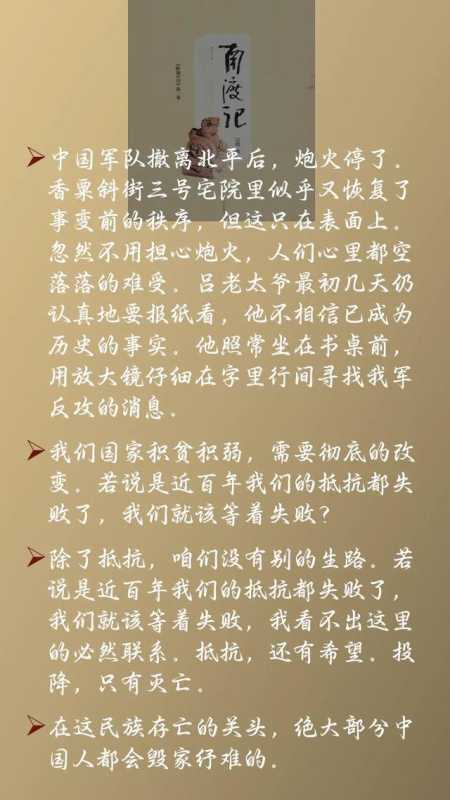 南渡记
中国军队撤离北平后，炮火停了．
香粟斜街三号宅院里似乎又恢复了
事变前的秩序，但这只在表面上．
忽然不用担心炮火，人们心里都空
落落的难受．吕老太爷最初几天仍
认真地要报纸看，他不相信已成为
历史的事实．他照常坐在书桌前，
用放大镜仔细在字里行间寻找我军
反攻的消息．
我们国家积贫积弱，需要彻底的改
变．若说是近百年我们的抵抗都失
败了，我们就该等着失败？
除了抵抗，咱们没有别的生路．若
说是近百年我们的抵抗都失败了，
我们就该等着失败，我看不出这里
的必然联系．抵抗，还有希望．投
降，只有灭亡．
在这民族存亡的关头，绝大部分中
国人都会毁家纾难的．